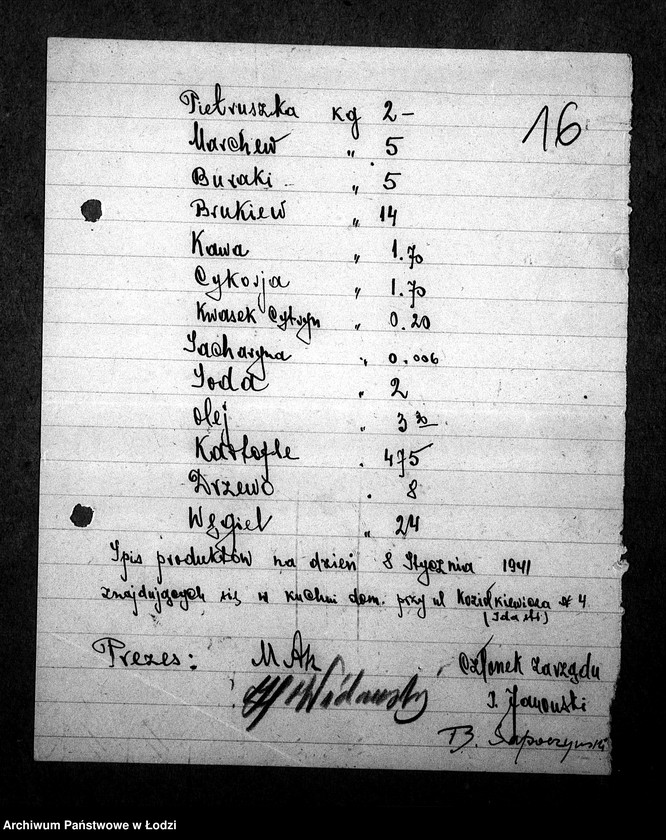 16
Pietruszka kg 2 –
Marchew " 5
Buraki " 5
Brukiew " 14
Kawa " 1.70
Cykorja " 1.70
Kwasek Cytryn " 0.20
Sacharyna " 0.006
Soda " 2
Olej " 3
Kartofle " 475
Drzewo " 8
Węgiel " 24
Spis produktów na dzień 8 Stycznia 1941
znajdujących się w kuchni dom. przy ul
Prezes: Członek zarządu
Archiwum Państwowe w Łodzi